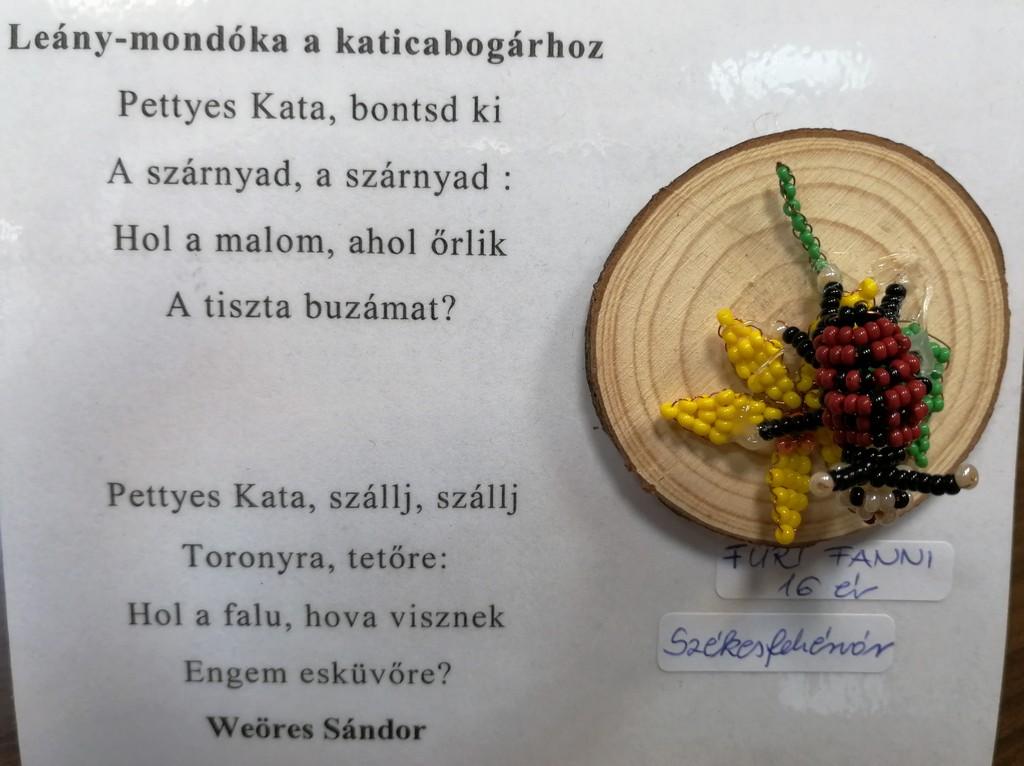 Leány-mondóka a katicabogárhoz
Pettyes Kata, bontsd ki
A szárnyad, a szárnyad :
Hol a malom, ahol őrlik
A tiszta buzámat?
Pettyes Kata, szállj, szállj
Toronyra, tetőre:
Hol a falu, hova visznek
Engem esküvőre?
Weöres Sándor
FANNI
16 év
Székesfehérvár